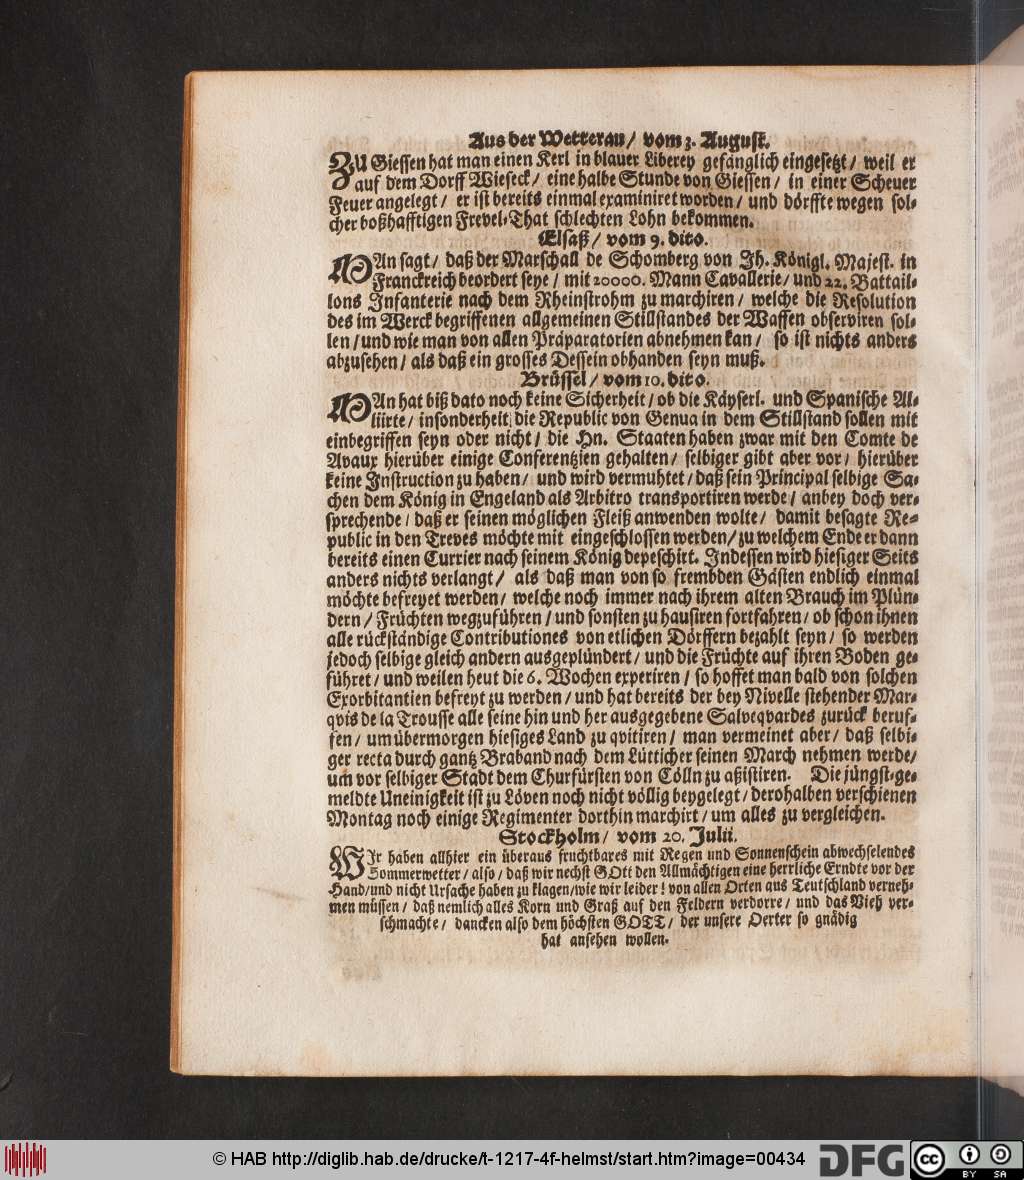 Aus der Wetterau / vom 3. August.
ZU Giessen hat man einen Kerl in blauer Liberey gefänglich eingesetzt / weil er
auf dem Dorff Wieseck / eine halbe Stunde von Giessen / in einer Scheuer
Feuer angelegt / er ist bereits einmal examiniret worden / und dörffte wegen sol-
cher boßhafftigen Frevel-That schlechten Lohn bekommen.
Elsaß / vom 9. dito.
MAn sagt / daß der Marschall de Schomberg von Ih. Königl. Majest. in
Franckreich beordert seye / mit 20000. Mann Cavallerie / und 22. Battail-
lons Infanterie nach dem Rheinstrohm zu marchiren / welche die Resolution
des im Werck begriffenen allgemeinen Stillstandes der Waffen observiren sol-
len / und wie man von allen Präparatorien abnehmen kan / so ist nichts anders
abzusehen / als daß ein grosses Dessein obhanden seyn muß.
Brüssel / vom 10. dito.
MAn hat biß dato noch keine Sicherheit / ob die Käyserl. und Spanische Al-
liirte / insonderheit die Republic von Genua in dem Stillstand sollen mit
einbegriffen seyn oder nicht / die Hn. Staaten haben zwar mit den Comte de
Avaux hierüber einige Conferentzien gehalten / selbiger gibt aber vor / hierüber
keine Instruction zu haben / und wird vermuhtet / daß sein Principal selbige Sa-
chen dem König in Engeland als Arbitro transportiren werde / anbey doch ver-
sprechende / daß er seinen möglichen Fleiß anwenden wolte / damit besagte Re-
public in den Treves möchte mit eingeschlossen werden / zu welchem Ende er dann
bereits einen Currier nach seinem König depeschirt. Indessen wird hiesiger Seits
anders nichts verlangt / als daß man von so frembden Gästen endlich einmal
möchte befreyet werden / welche noch immer nach ihrem alten Brauch im Plün-
dern / Früchten wegzuführen / und sonsten zu hausiren fortfahren / ob schon ihnen
alle rückständige Contributiones von etlichen Dörffern bezahlt seyn / so werden
jedoch selbige gleich andern ausgeplündert / und die Früchte auf ihren Boden ge-
führet / und weilen heut die 6. Wochen experiren / so hoffet man bald von solchen
Exorbitantien befreyt zu werden / und hat bereits der bey Nivelle stehender Mar-
qvis de la Trousse alle seine hin und her ausgegebene Salveqvardes zurück beruf-
fen / um übermorgen hiesiges Land zu qvitiren / man vermeinet aber / daß selbi-
ger recta durch gantz Braband nach dem Lütticher seinen March nehmen werde /
um vor selbiger Stadt dem Churfürsten von Cölln zu aßistiren. Die jüngst-ge-
meldte Uneinigkeit ist zu Löven noch nicht völlig beygelegt / derohalben verschienen
Montag noch einige Regimenter dorthin marchirt / um alles zu vergleichen.
Stockholm / vom 20. Julii.
WIr haben allhier ein überaus fruchtbares mit Regen und Sonnenschein abwechselendes
Sommerwetter / also / daß wir nechst GOtt den Allmächtigen eine herrliche Erndte vor der
Hand / und nicht Ursache haben zu klagen / wie wir leider! von allen Orten aus Teutschland verneh-
men müssen / daß nemlich alles Korn und Graß auf den Feldern verdorre / und das Vieh ver-
schmachte / dancken also dem höchsten GOTT / der unsere Oerter so gnädig
hat ansehen wollen.
© HAB http://diglib.hab.de/drucke/t-1217-4f-helmst/start.htm?image=00434
DFG
cc BY SA